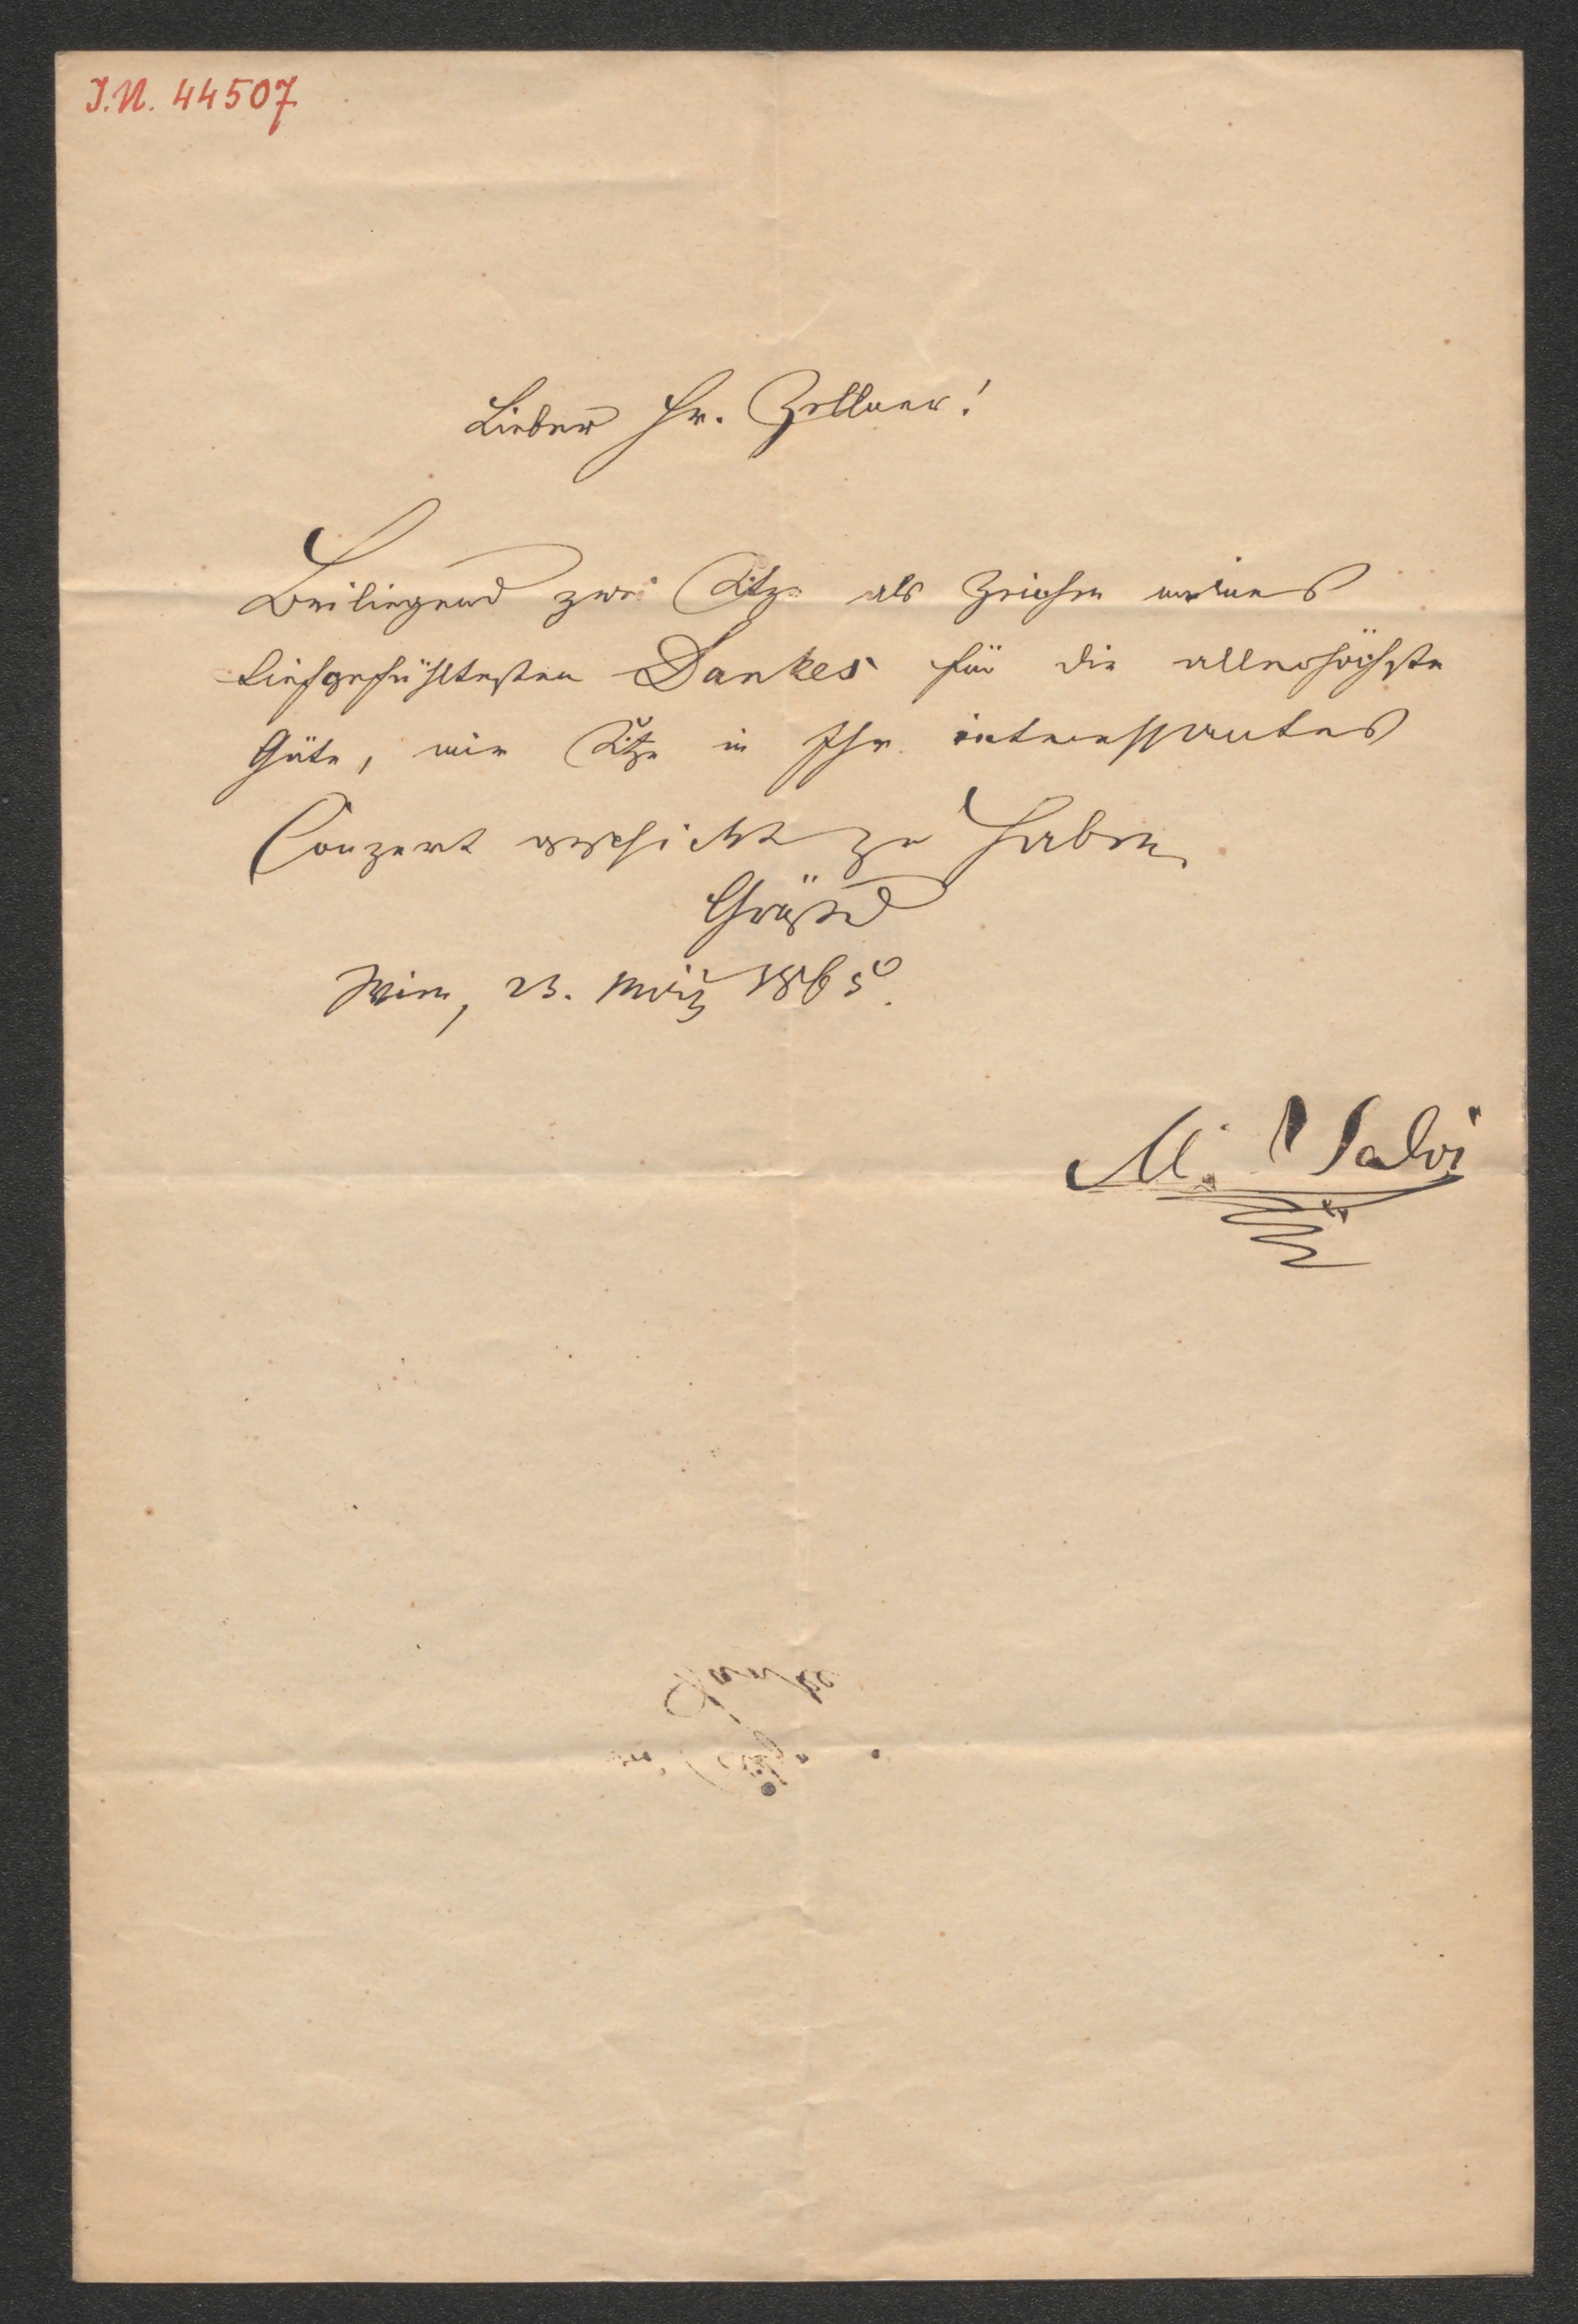 I.N. 44507
Lieber Hr. Zellner!
Beiliegend zwei Sitze als Zeichen meines
tiefgefühltesten Dankes für die allerhöchste
Güte, mir Sitze in Ihr interessantes
Conzert geschickt zu haben.
Grüßend
Wien, 23. März 1865.
M. Salvi